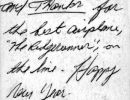 and Thanks for
the best airplane,
"The Ridgerunner", on
the line. Happy
New Year.